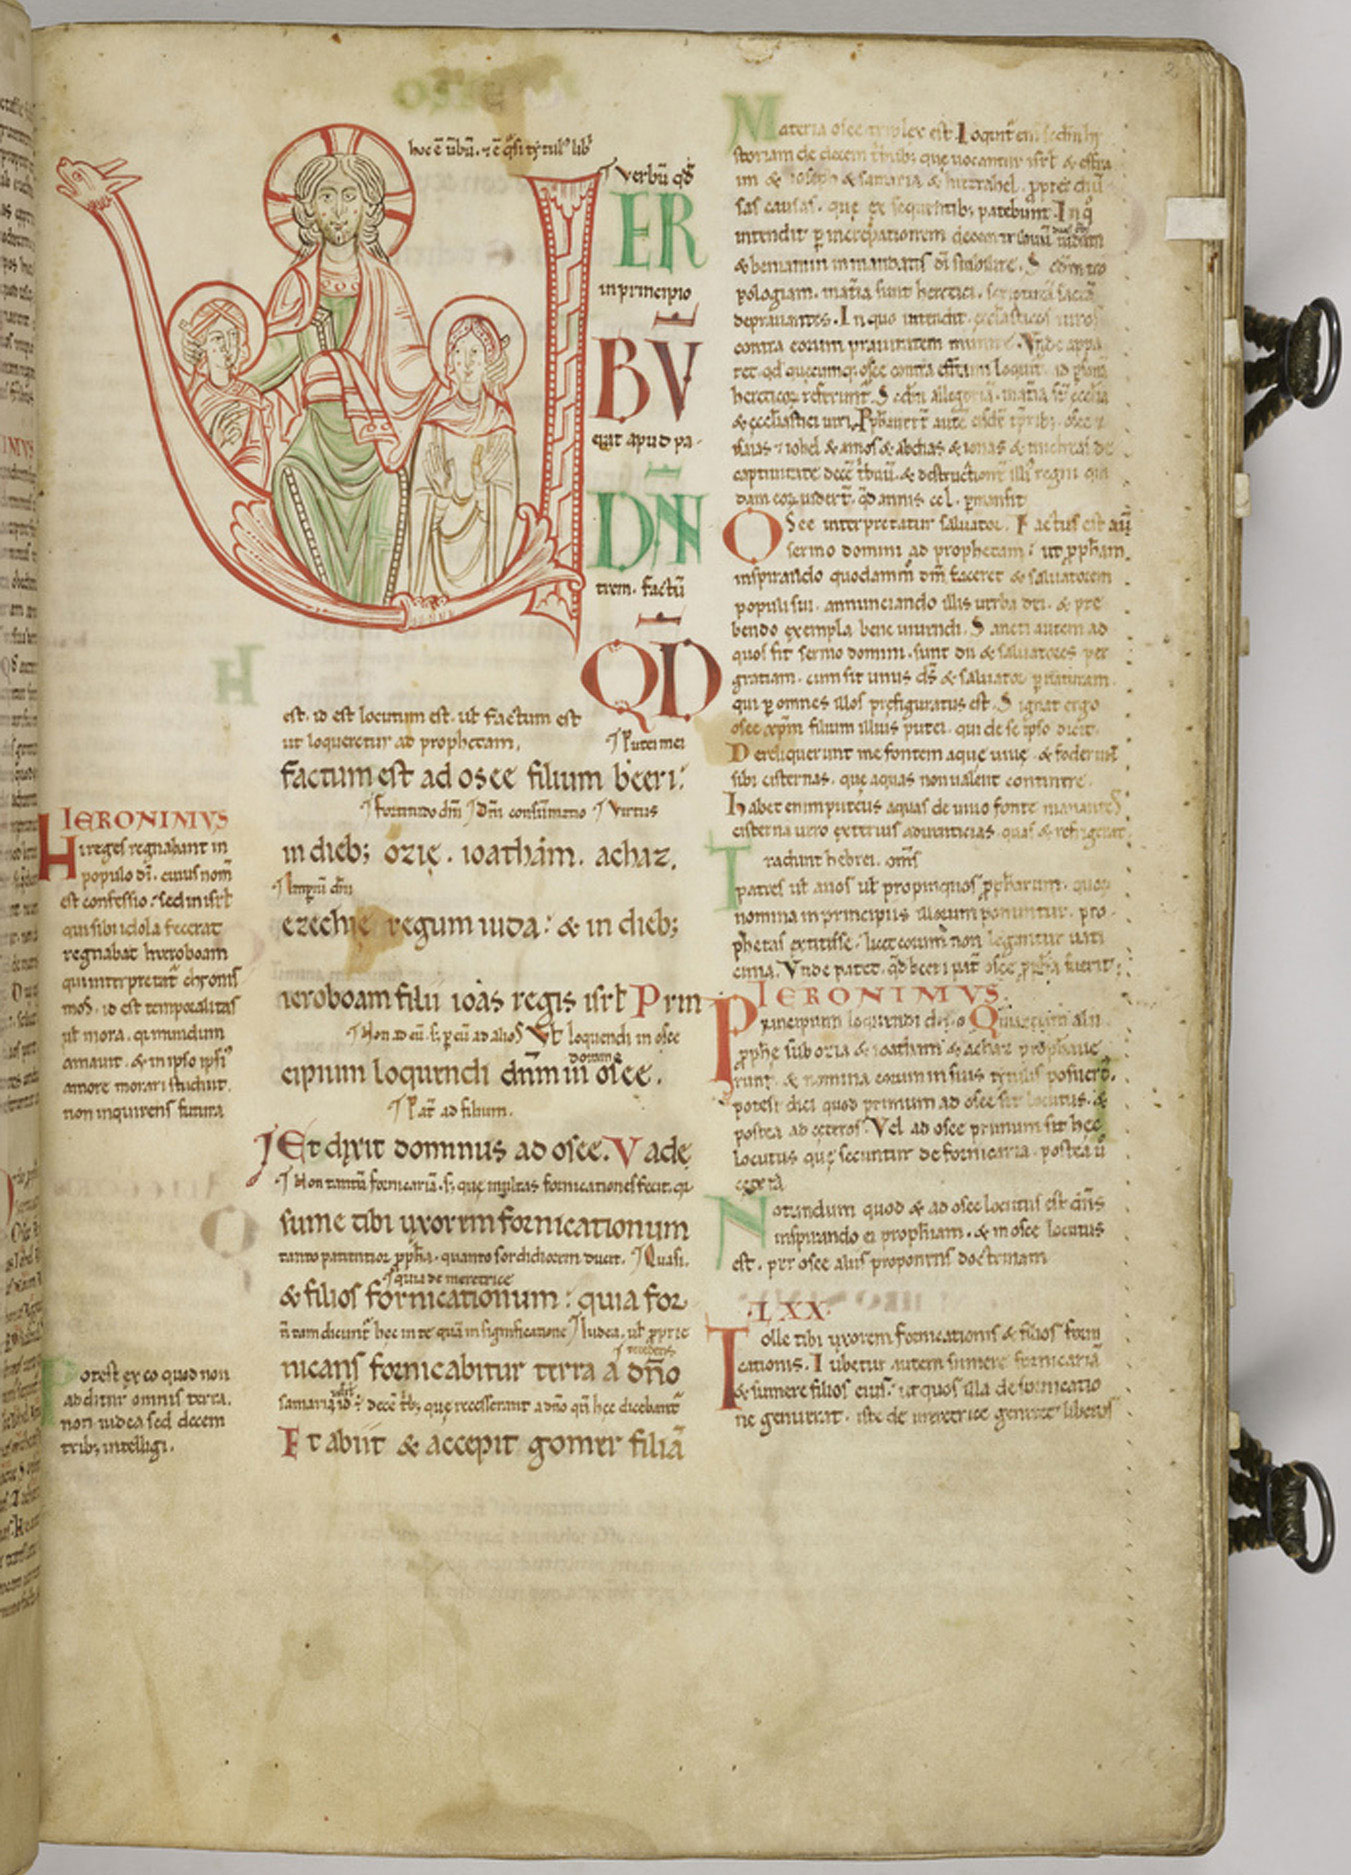 hoc ē ūbū. ⁊ ē q̄si tytul' lib'
Verbū qđ
ER
in principio
BV
erat apud pa-
DÑI
trem. factū
QD
est. id est locutum est. ul' factum est
ut loqueretur ad prophetam.
Putei mei
factum est ad osee filium beeri:
Fortitudo dñi Dñi consummatio Virtus
in dieb; ozię. ioatham. achaz.
Imperiū dñi
ezechię regum iuda: & in dieb;
ieroboam filii ioas regis isrł Prin
Non ad eū. s; p eū ad alios Vł loquendi in osee
cipium loquendi dñm in osee.
Pat' ad filium.
Et dixit dominus ad osee. Vade
Non tantū fornicariā. s; que multas fornicationes fecit. qi
sume tibi uxorem fornicationum
tanto patientior pph̄a. quanto sordidiorem duxit. Quasi.
quia de meretrice
& filios fornicationum: quia for
ñ tam dicunt' hec in te quā in significatione Iudea. ul' proprie
recedens
nicans fornicabitur terra a dño
samaria id ē decē trib; que recesserant a dño qñ hec dicebant'
Et abiit & accepit gomer filiā
HIERONIMVS
Hi reges regnabant in
populo dī. cuius nom̄
est confessio: sed in isrł
qui sibi idola fecerat
regnabat hieroboam
qui interpretat' chronis
mos. id est temporalitas
ul' mora. qui mundum
amauit. & in ipso ipsi'
amore morari studuit.
non inquirens futura
Potest ex eo quod non
additur omnis terra.
non iudea sed decem
trib; intelligi.
Materia osee triplex est. Loquit' eni secdm hy
storiam de decem tribib; que uocantur isrł & effra
im & ioseph & samaria & hiezrahel. propter diu
sas causas. que ex sequentib; patebunt. In q̄
intendit p increpationem decem tribuū iudam
& beniamin in mandatis dī stabilire. Secdm tro
pologiam. materia sunt heretici. scripturā sacrā
deprauantes. In quo intendit. ecclasticos uiros
contra eorum prauitatem munire. Vnde appa
ret. qđ quecumq; osee contra effraim loquit'. id psonā
hereticoꝝ referunt'. Secdm allegoriā. materia sunt ecclia
& ecclesiastici uiri. Pphauert' autē eisdē tporib; osee &
isaias ⁊ iohel & amos & abdias & ionas & micheas de
captiuitate decē tribuū. & destructione illi' regni qui
dam eoꝝ uidert'. qđ annis ccl. pmansit
Osee interpretatur saluator. Factus est autē
sermo domini ad prophetam: ut ppham
inspirando quodammodo dñm faceret & saluatorem
populi sui. annunciando illis uerba dei. & pre
bendo exempla bene uiuendi. Sancti autem ad
quos fit sermo domini. sunt dii & saluatores per
gratiam. cum sit unus ds & saluator p naturam.
qui p omnes illos prefiguratus est. Signat ergo
osee xpm filium illius putei. qui de se ipso dicit.
Dereliquerunt me fontem aque uiue. & foderunt
sibi cisternas. que aquas non ualent continere.
Habet enim puteus aquas de uiuo fonte manantes
cisterna uero exterius aduenticias. quas & refrigerat
Tradunt hebrei. oms
patres ul' auos ul' propinquos ppharum. quoꝝ
nomina in principiis illorum ponuntur. pro
phetas extitisse. licet eorum non legantur uati
cinia. Vnde patet. qđ beeri pat' osee ppha fuerit.
IERONIMVS.
Principium loquendi dño
pphe sub ozia & ioatham & achaz prophaue
runt. & nomina eorum in suis tytulis posuert'.
potest dici quod primum ad osee sit locutus. &
postea ad ceteros. Vel ad osee primum sit hec
locutus que secuntur de fornicaria. postea ū
cetera
Notandum quod & ad osee locutus est dñs
inspirando ei prophiam. & in osee locutus
est. per osee aliis proponens doctrinam
LXX
Tolle tibi uxorem fornicationis & filios forni
cationis. Iubetur autem sumere fornicariā
& sumere filios eius. ut quos illa de fornicatio
ne genuerat. iste de meretrice generet liberos